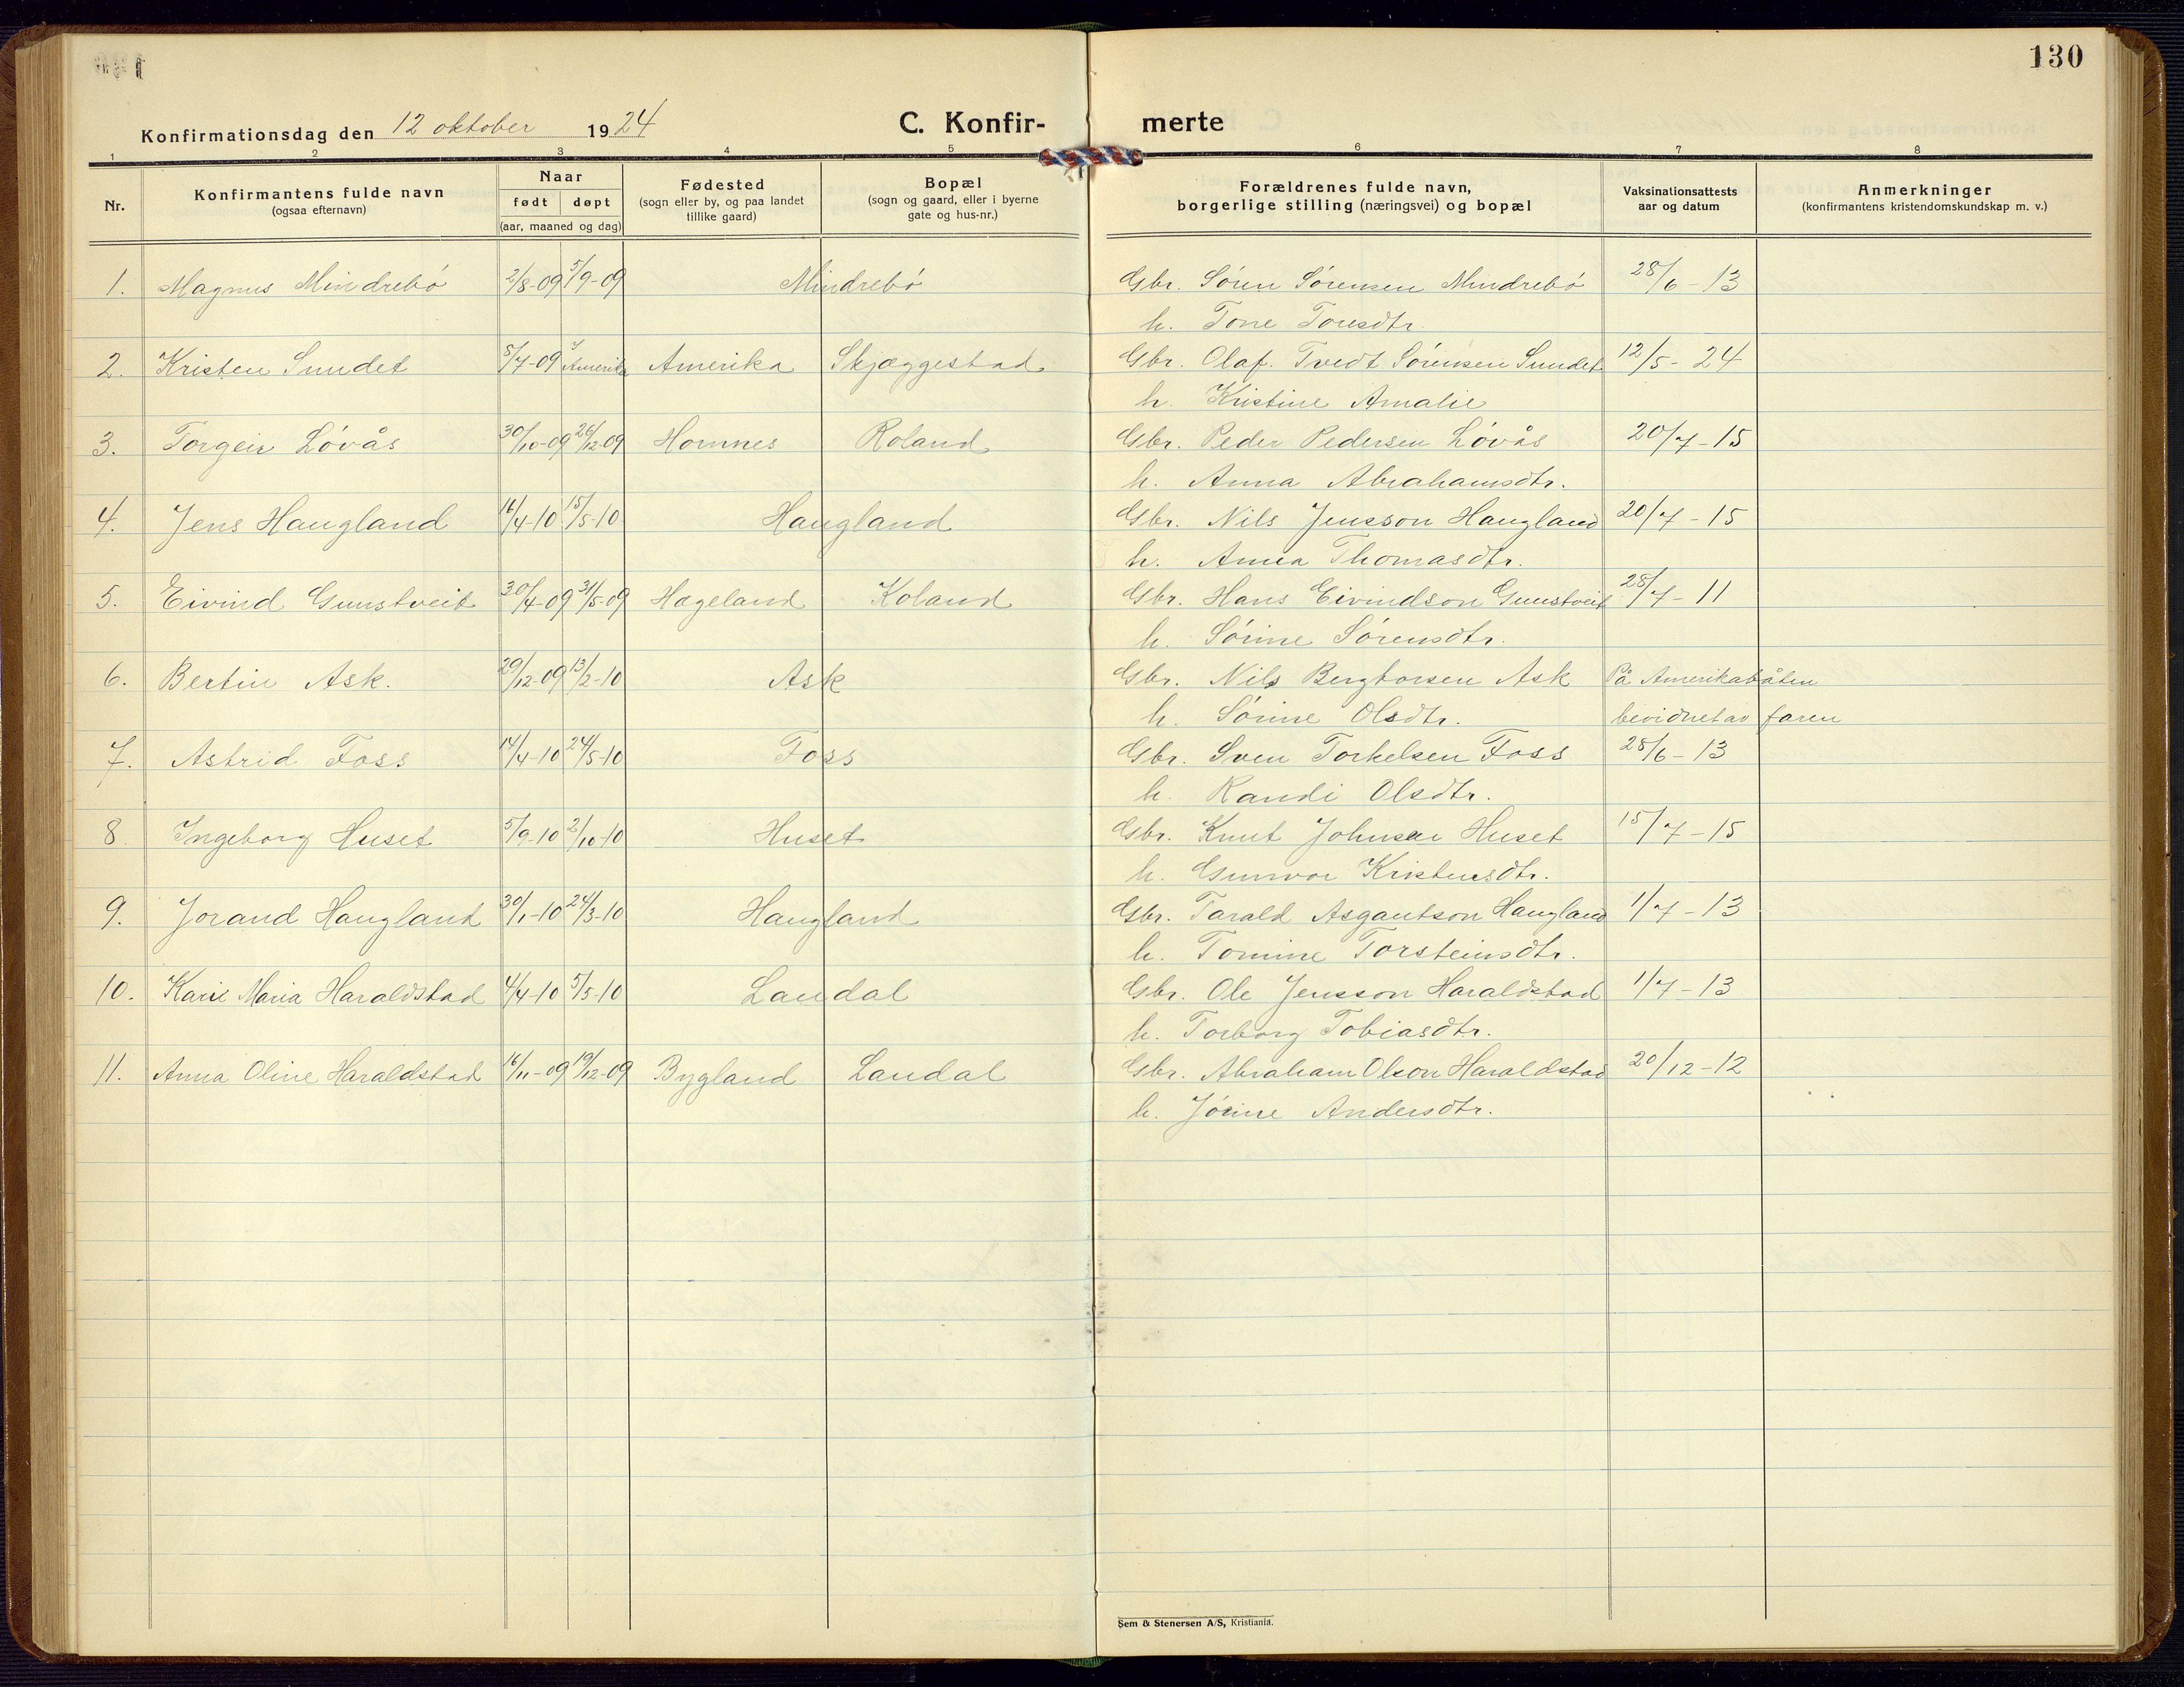 130
Konfirmationsdag den 12 oktober 1924
C. Konfir- merte
1 2 3 4 5 6 7 8
Nr.
Konfirmantens fulde navn
(ogsaa efternavn)
Naar
født døpt
(aar, maaned og dag)
Fødested
(sogn eller by, og paa landet
tillike gaard)
Bopæl
(sogn og gaard, eller i byerne
gate og hus-nr.)
Forældrenes fulde navn,
borgerlige stilling (næringsvei) og bopæl
Vaksinationsattests
aar og datum
Anmerkninger
(konfirmantens kristendomskundskap m. v.)
1. Magnus Mindrebö 2/8-09 5/9-09 Mindrebö Gbr. Sören Sörensen Mindrebö 28/6-13
h. Tone Toresdtr.
2. Kristen Sundet 5/7-09 I Amerika Amerika Skjæggestad Gbr. Olaf Tvedt Sörensen Sundet 12/5-24
h. Kristine Amalie
3. Torgeir Lövås 30/10-09 26/12-09 Hornnes Roland Gbr. Peder Pedersen Lövås 20/7-15
h. Anna Abrahamsdtr.
4. Jens Haugland 16/4-10 15/5-10 Haugland Gbr. Nils Jensson Haugland 20/7-15
h. Anna Thomasdtr.
5. Eivind Gunstveit 30/4-09 31/5-09 Hægeland Koland Gbr. Hans Eivindson Gunstveit 28/7-11
h. Sörine Sörensdtr.
6. Bertin Ask. 29/12-09 13/2-10 Ask Gbr. Nils Bergtorsen Ask På Amerikabåten
h. Sörine Olsdtr. bevidnet av faren
7. Astrid Foss 14/4-10 24/5-10 Foss Gbr. Sven Torkelsen Foss 28/6-13
h. Randi Olsdtr.
8. Ingeborg Huset 5/9-10 2/10-10 Huset Gbr. Knut Johnsen Huset 15/7-15
h. Gunvor Kristensdtr.
9. Jorand Haugland 30/1-10 24/3-10 Haugland Gbr. Tarald Asgautson Haugland 1/7-13
h. Tomine Torsteinsdtr.
10. Kari Maria Haraldstad 4/4-10 5/5-10 Landal Gbr. Ole Jensson Haraldstad 1/7-13
h. Torborg Tobiasdtr.
11. Anna Oline Haraldstad 16/11-09 19/12-09 Bygland Landal Gbr. Abraham Olson Haraldstad 20/12-12
h. Jörine Andersdtr.
Sem & Stenersen A/S, Kristiania.